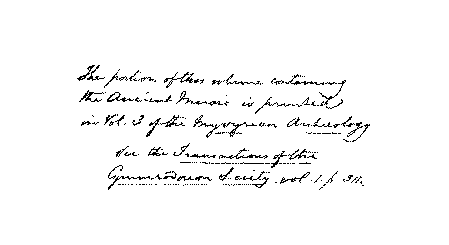 The portion of this volume containing
the Ancient Music is printed
in Vol. 3 of the Myvyrian Archæology
See the Transactions of the
Cymmrodorion Society vol. 1. p